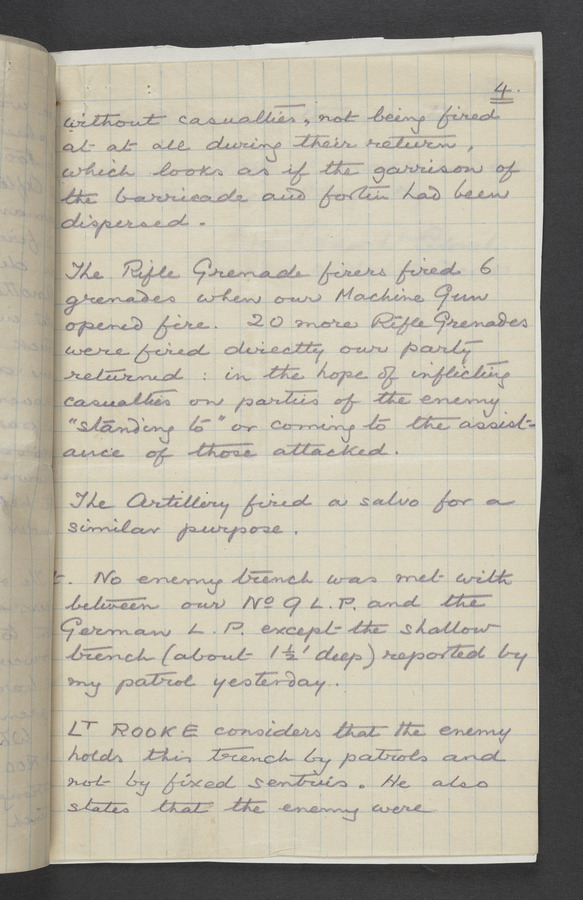 4.
without casualties, not being fired
at at all during their return,
which looks as if the garrison of
the barricade and fortin had been
dispersed.
The Rifle Grenade firers fired 6
grenades when our Machine Gun
opened fire. 20 more Rifle Grenades
were fired directly our party
returned : in the hope of inflicting
casualties on parties of the enemy
"standing to" or coming to the assist-
ance of those attacked.
The Artillery fired a salvo for a
similar purpose.
. No enemy trench was met with
between our No 9 L.P. and the
German L.P. except the shallow
trench (about 1½' deep) reported by
my patrol yesterday.
LT ROOKE considers that the enemy
holds this trench by patrols and
not by fixed sentries. He also
states that the enemy were